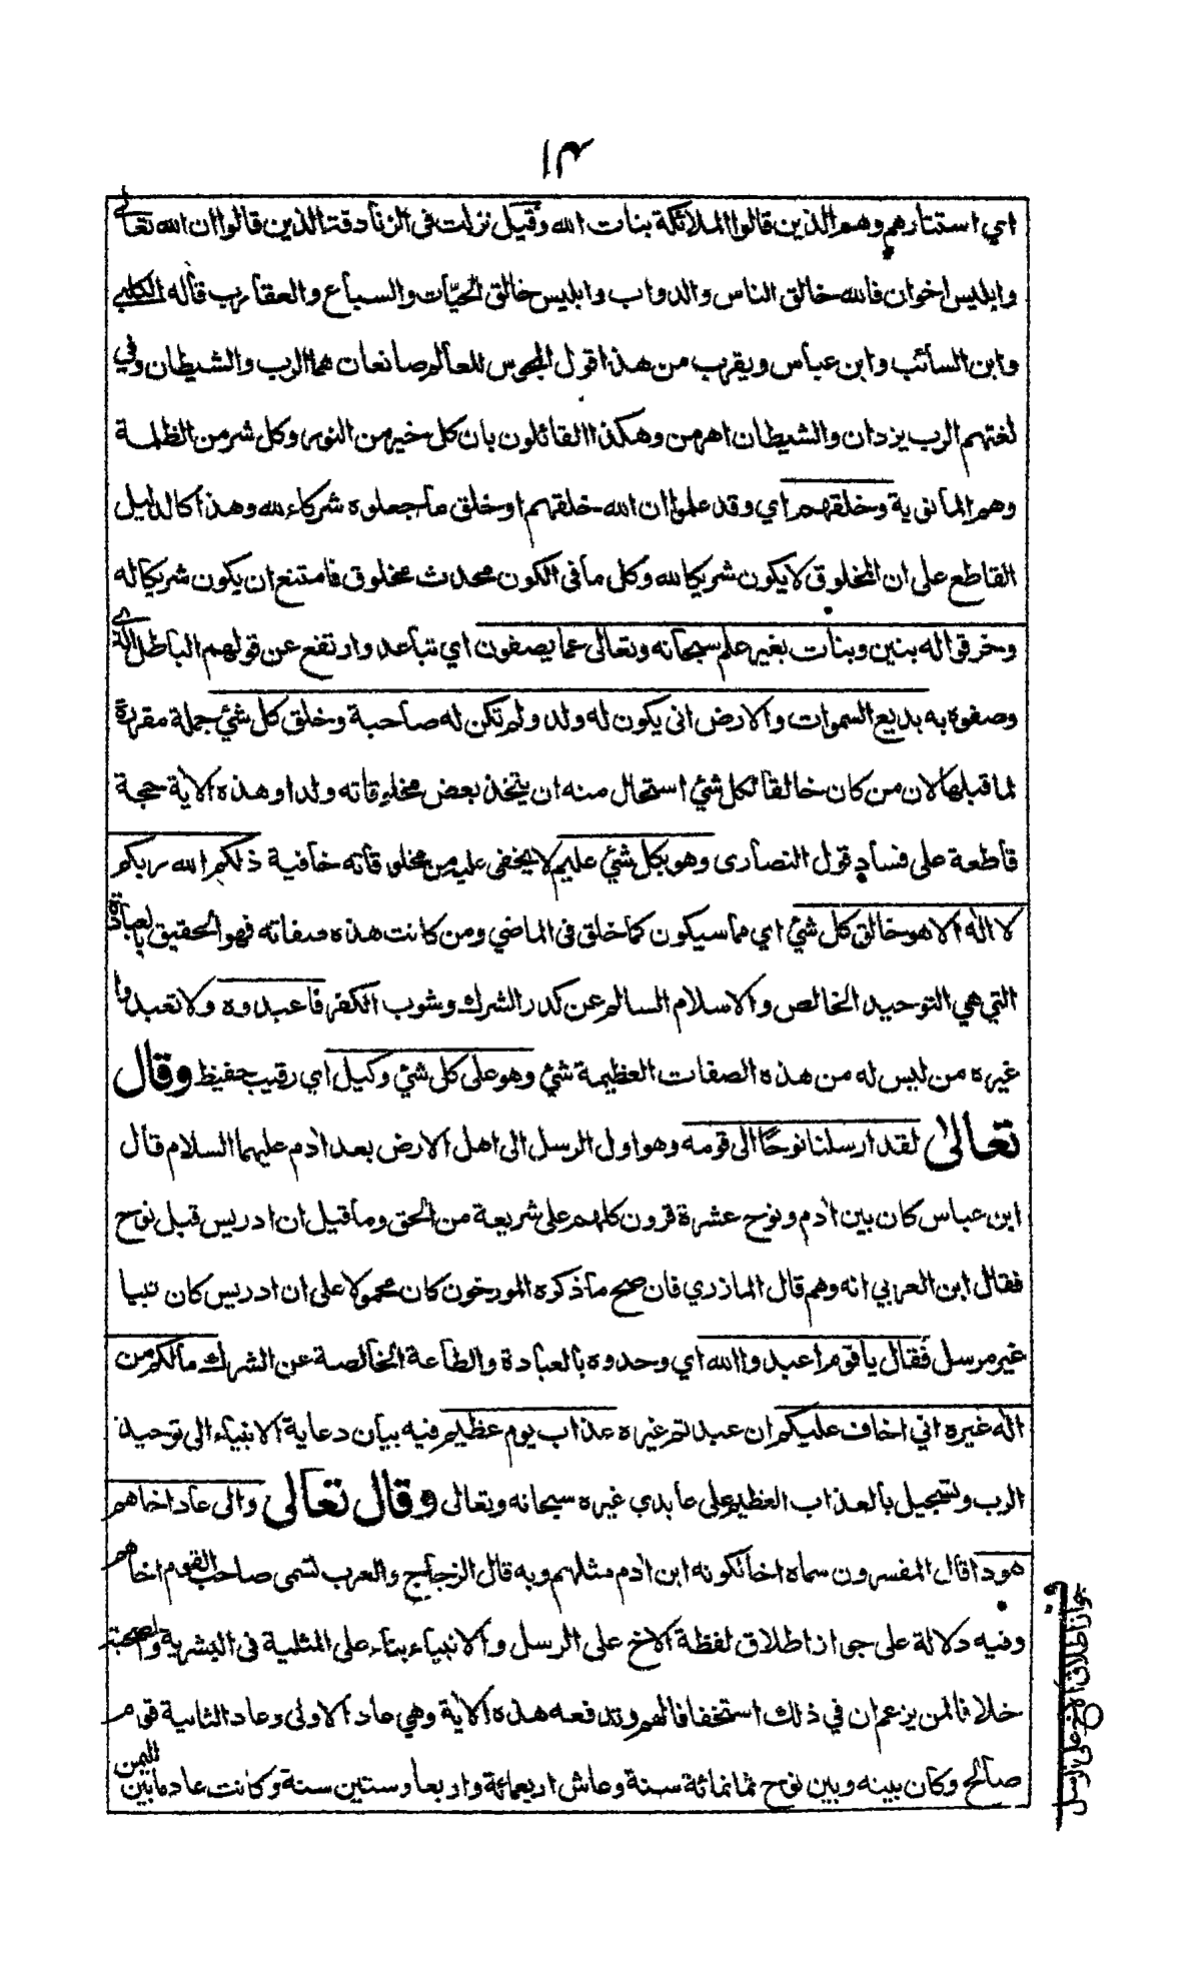 ١٣
اي استتارهم وهم الذين قالوا الملائكة بنات الله وقيل نزلت في الزنادقة الذين قالوا ان الله تعالى
وابليس اخوان فالله خالق الناس والدواب وابليس خالق الحيّات والسباع والعقارب قاله الكلبي
وابن السائب وابن عباس ويقرب من هذا قول المجوس للعالم صانعان هما الرب والشيطان وفي
لغتهم الرب يزدان والشيطان اهرمن وهكذا القائلون بان كل خير من النور وكل شر من الظلمة
وهم المانوية وخلقهم اي وقد علموا ان الله خلقهم او خلق ما جعلوه شركاء لله وهذا كالدليل
القاطع على ان المخلوق لا يكون شريكا لله وكل ما في الكون محدث مخلوق فامتنع ان يكون شريكا له
وخرقوا له بنين وبنات بغير علم سبحانه وتعالى عما يصفون اي تباعد وارتفع عن قولهم الباطل الذي
وصفوه به بديع السموات والارض انى يكون له ولد ولم تكن له صاحبة وخلق كل شئ جملة مقررة
لما قبلها لان من كان خالقا لكل شئ استحال منه ان يتخذ بعض مخلوقاته ولدا وهذه الاية حجة
قاطعة على فساد قول النصارى وهو بكل شئ عليم لا يخفى عليه من مخلوقاته خافية ذلكم الله ربكم
لا اله الا هو خالق كل شئ اي مما سيكون كما خلق في الماضي ومن كانت هذه صفاته فهو الحقيق بالعبادة
التي هي التوحيد الخالص والاسلام السالم عن كدر الشرك وشوب الكفر فاعبدوه ولا تعبدوا
غيره من ليس له من هذه الصفات العظيمة شئ وهو على كل شئ وكيل اي رقيب حفيظ وقال
تعالى لقد ارسلنا نوحًا الى قومه وهو اول الرسل الى اهل الارض بعد ادم عليهما السلام قال
ابن عباس كان بين ادم ونوح عشرة قرون كلهم على شريعة من الحق وما قيل ان ادريس قبل نوح
فقال ابن العربي انه وهم قال المازري فان صح ما ذكره المورخون كان محمولا على ان ادريس كان نبيا
غير مرسل فقال يا قوم اعبدوا الله اي وحدوه بالعبادة والطاعة الخالصة عن الشرك مالكم من
اله غيره اني اخاف عليكم ان عبدتم غيره عذاب يوم عظيم فيه بيان دعاية الانبياء الى توحيد
الرب وتسجيل بالعذاب العظيم على عابدي غيره سبحانه وتعالى وقال تعالى والى عاد اخاهم
هودا قال المفسرون سماه اخا لكونه ابن ادم مثلهم وبه قال الزجاج والعرب تسمى صاحب القوم اخاهم
وفيه دلالة على جواز اطلاق لفظة الاخ على الرسل والانبياء بناء على المثلية في البشرية والصحبة
خلافا لمن يزعم ان في ذلك استخفافا لهم وتدفعه هذه الاية وهي عاد الاولى وعاد الثانية قوم
صالح وكان بينه وبين نوح ثمانمائة سنة وعاش اربعمائة واربعا وستين سنة وكانت عاد ما بين اليمن
جواز اطلاق الاخ على الرسل